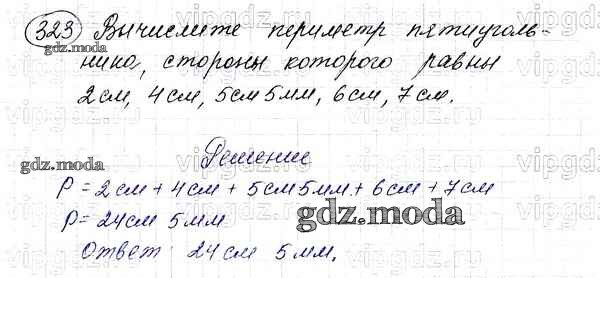 323 Вычислите периметр пятиуголь-
ника, стороны которого равны
2см, 4см, 5см 5мм, 6см, 7см.
Решение
P = 2см + 4см + 5см 5мм + 6см + 7см
P = 24см 5мм
Ответ: 24см 5мм.
gdz.moda
gdz.moda
gdz.moda